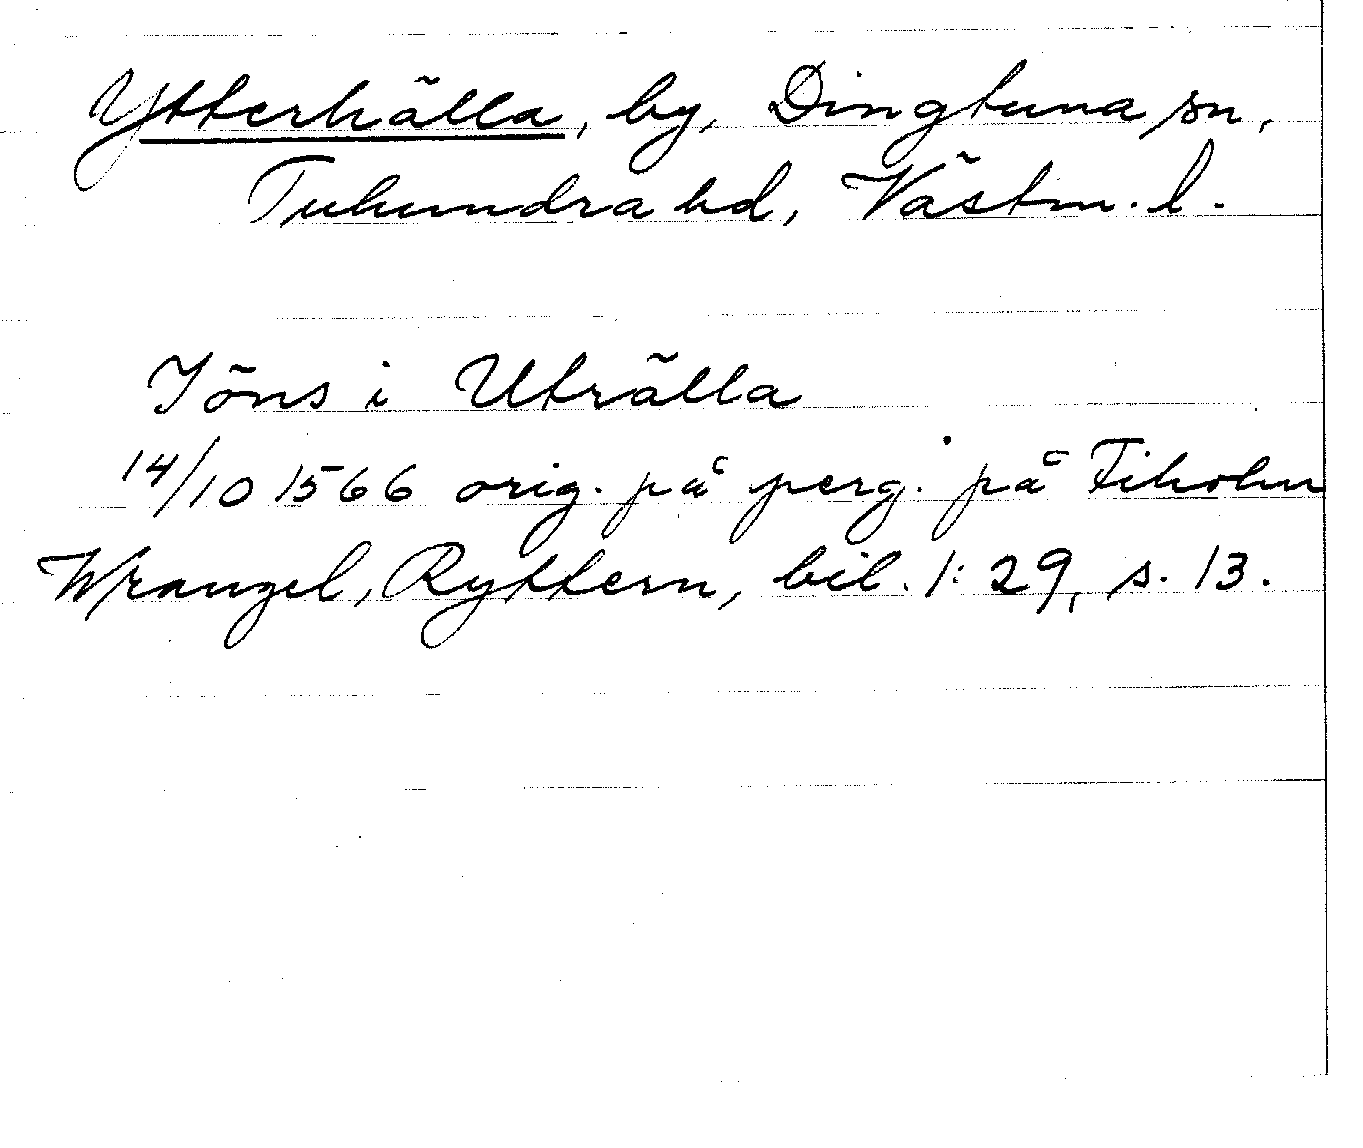 Ytterhälla, by, Dingtuna sn,
Tuhundra hd, Västm. l.
Jöns i Uträlla
14/10 1566 orig. på perg. på Fiholm
Wrangel, Ryttern, bil. 1: 29, s. 13.